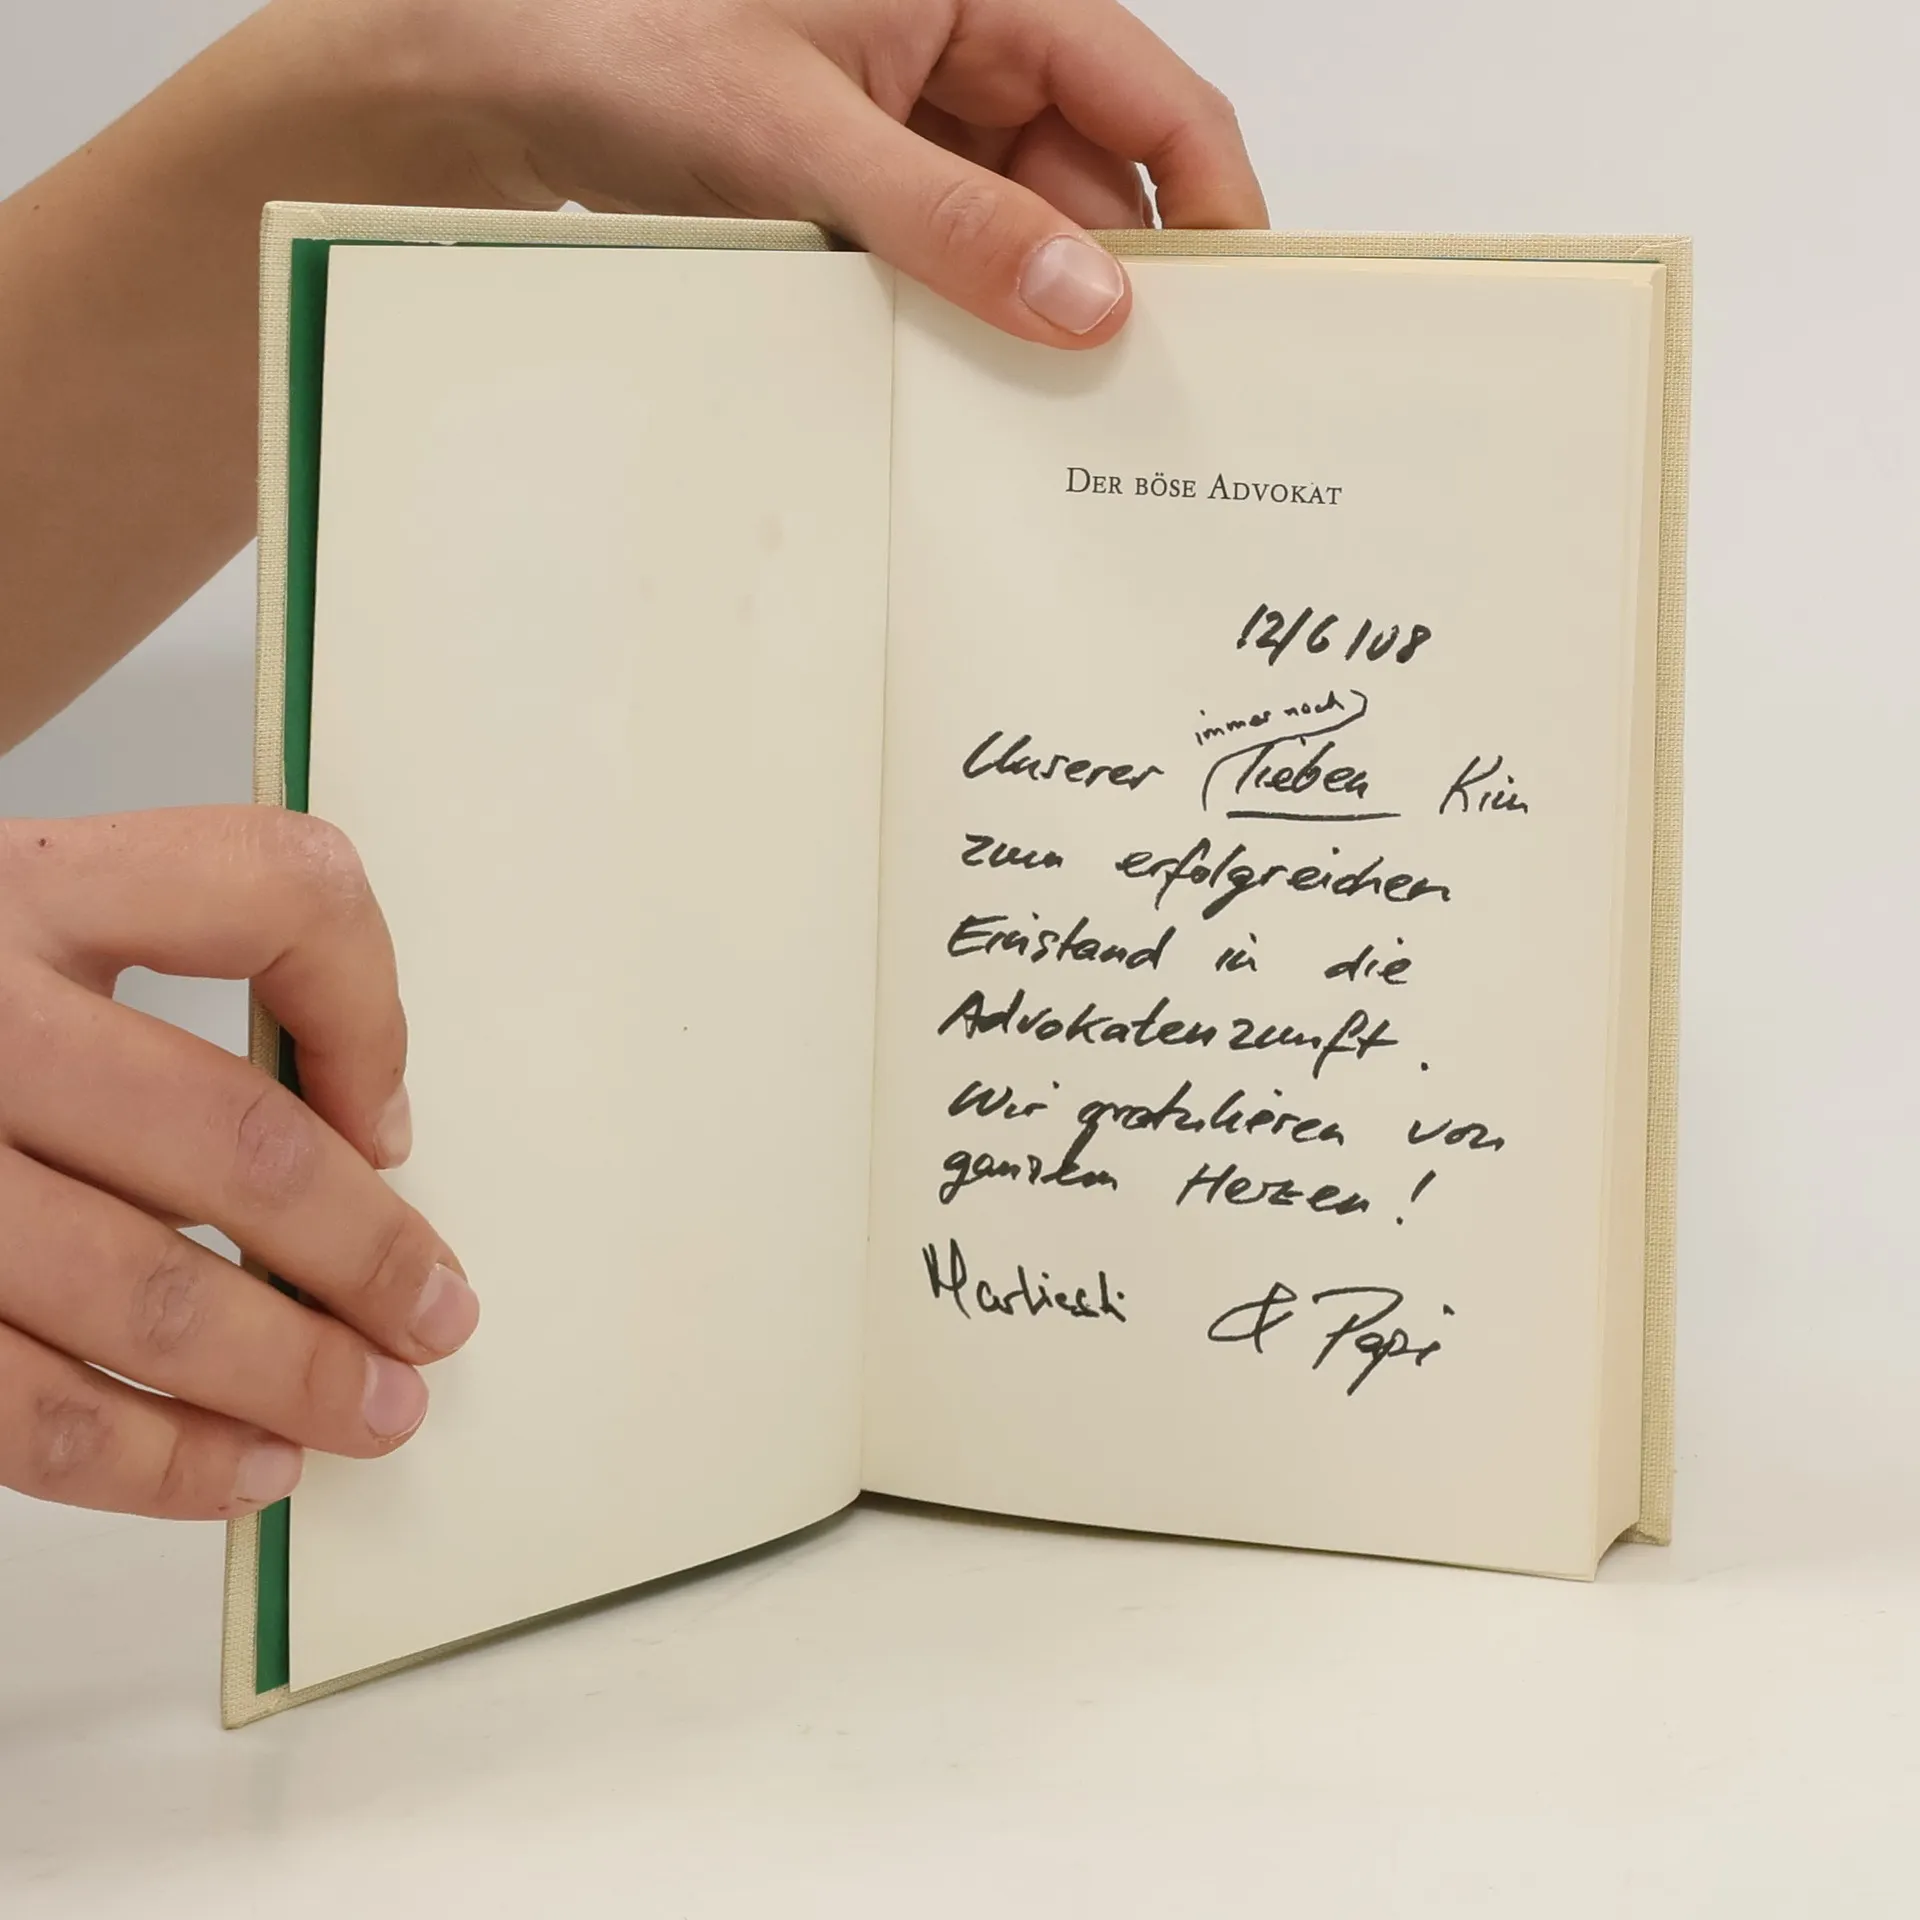 DER BÖSE ADVOKAT
12/6/08
immer noch
Unserer lieben Kim
zum erfolgreichen
Einstand in die
Advokatenzunft.
Wir gratulieren von
ganzem Herzen!
& Papi